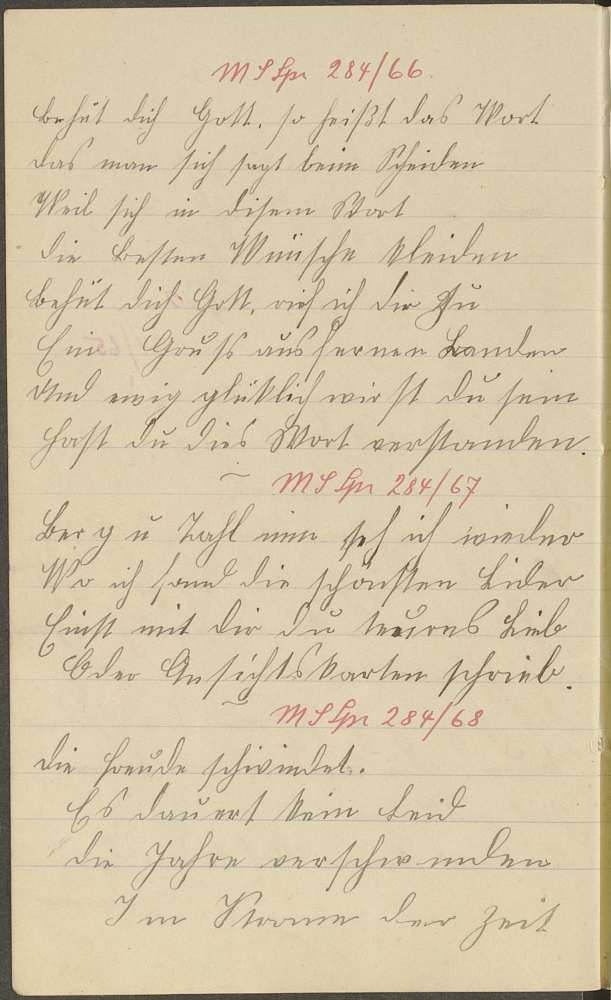 MS Spr 284/66.
Behüt dich Gott, so heißt das Wort
das man sich sagt beim Scheiden
Weil sich in disem Wort
die Besten Wünsche kleiden
Behüt dich Gott, rief ich dir zu
Ein Gruss aus fernen Landen
Und ewig glüklich wirst du sein
hast du dies Wort verstanden.
MS Spr 284/67
Berg u Tahl nun seh ich wieder
Wo ich fand die schönsten Lider
Einst mit dir du teures Lieb
Oder Ansichtskarten schrieb.
MS Spr 284/68
die Freude schwindet.
Es dauert kein Leid
die Jahre verschwinden
Im Strome der Zeit